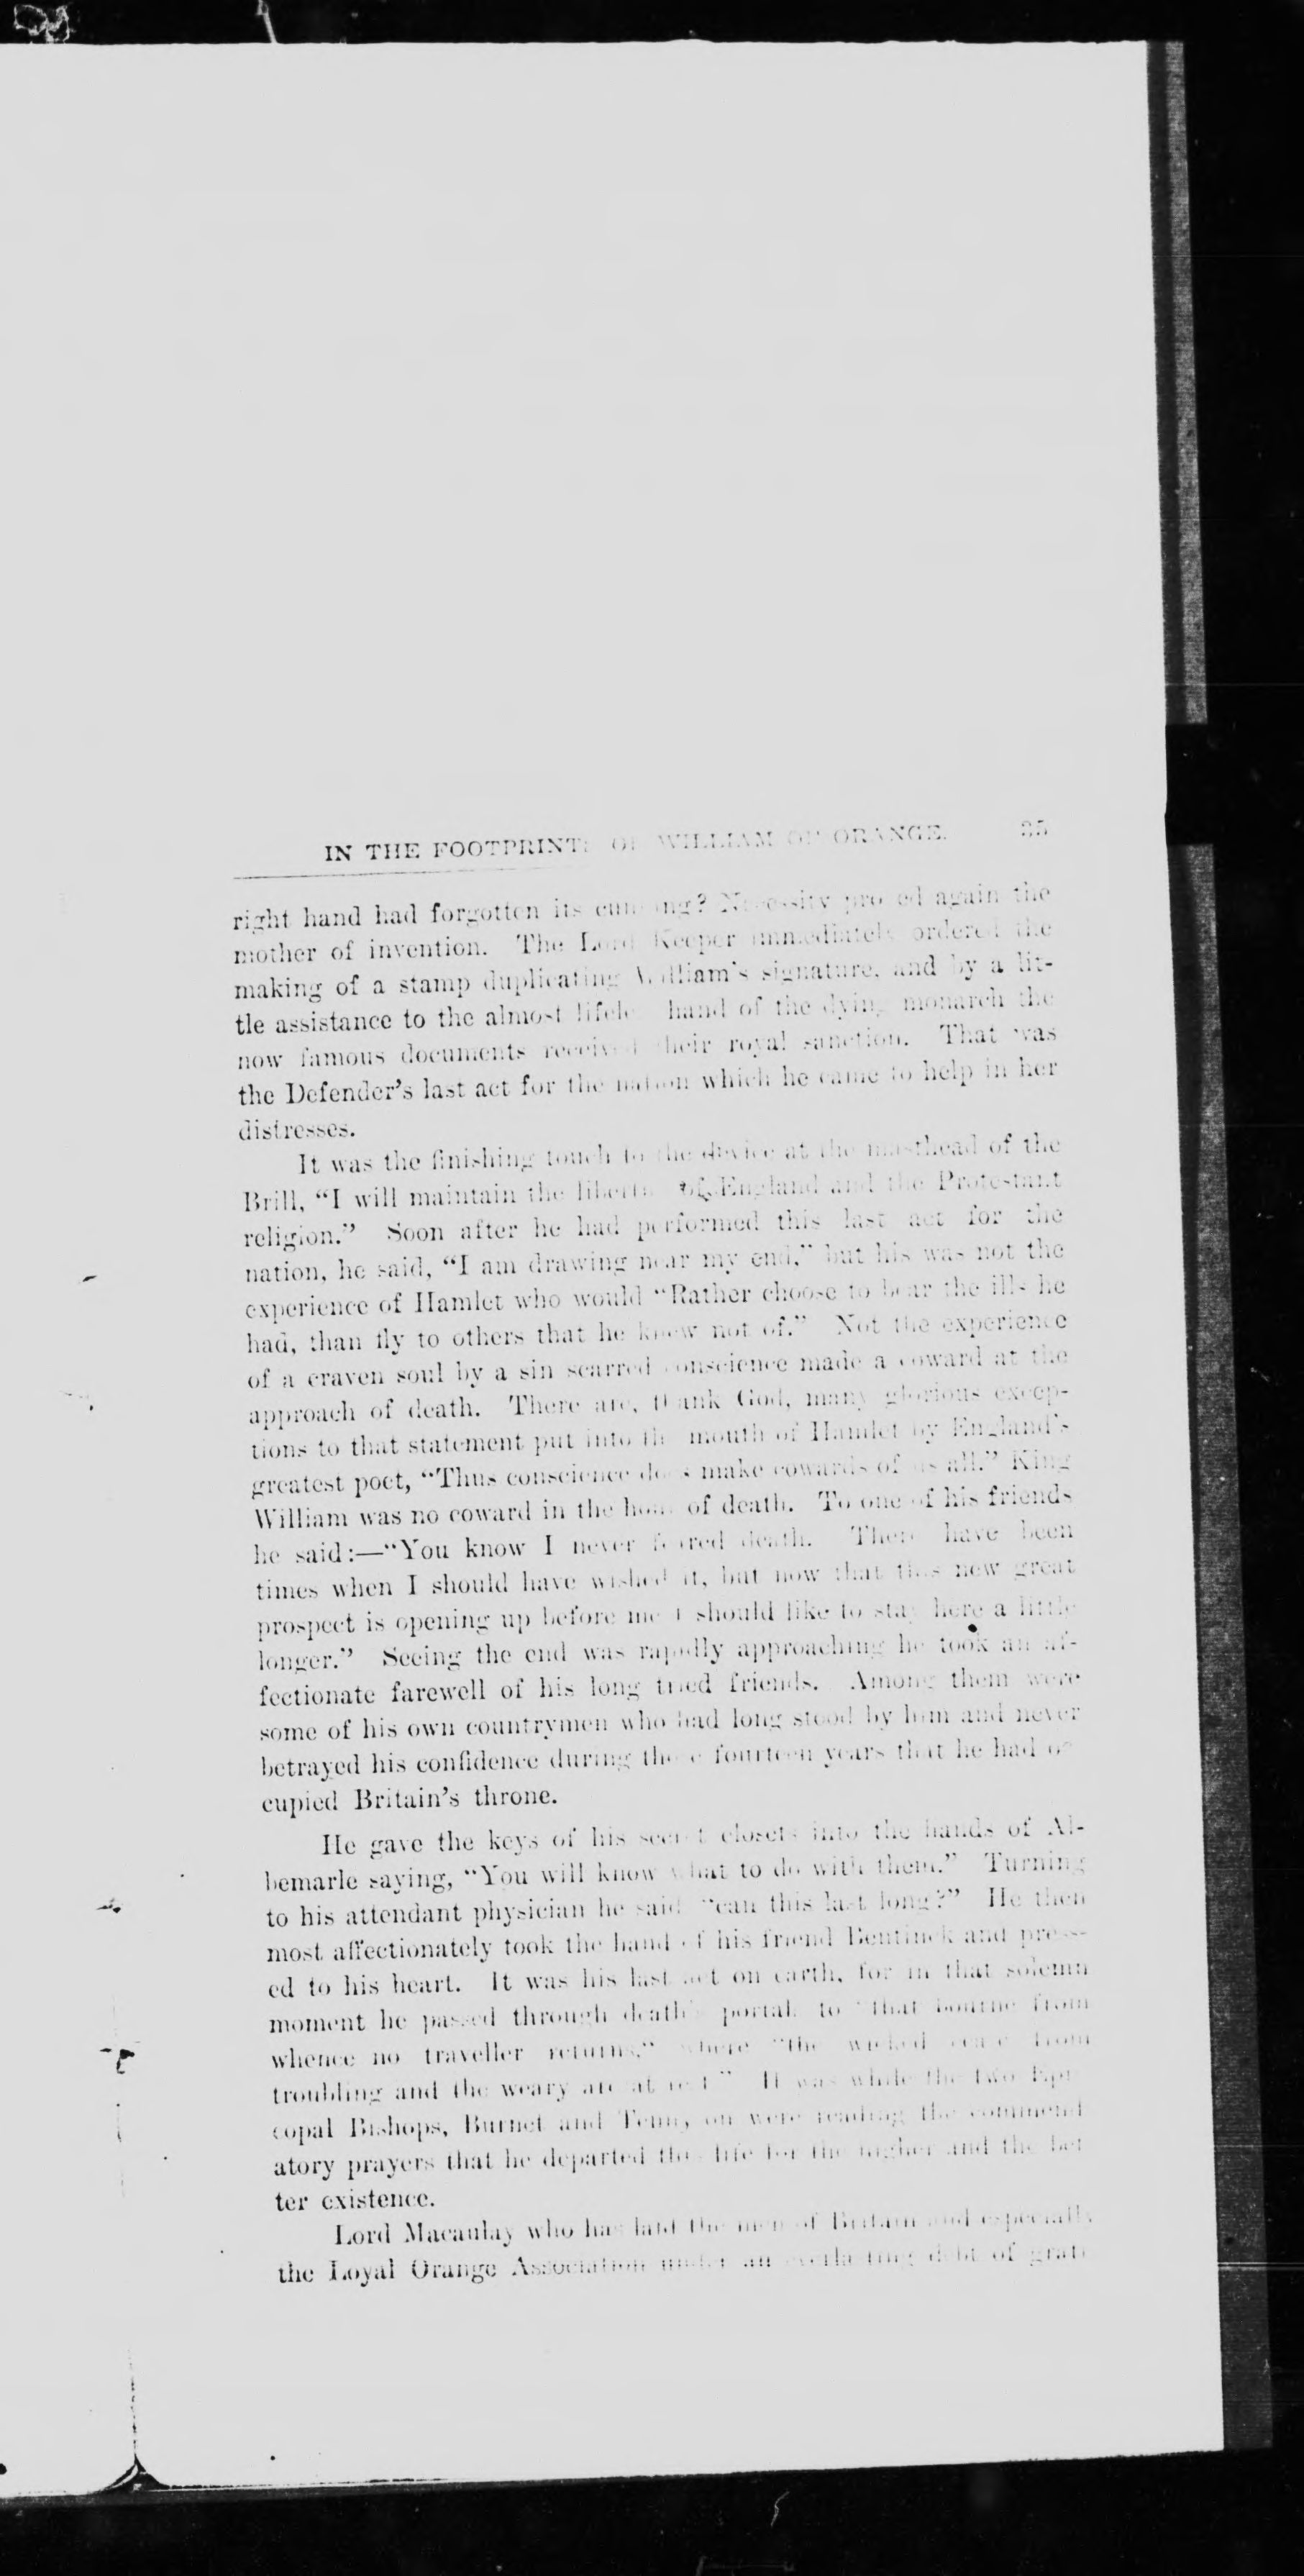 IN THE FOOTPRINTS OF WILLIAM OF ORANGE. 35
right hand had forgotten its cunning? Necessity proved again the
mother of invention. The Lord Keeper immediately ordered the
making of a stamp duplicating William's signature, and by a lit-
tle assistance to the almost lifeless hand of the dying monarch the
now famous documents received their royal sanction. That was
the Defender's last act for the nation which he came to help in her
distresses.
It was the finishing touch to the device at the masthead of the
Brill, “I will maintain the liberties of England and the Protestant
religion.” Soon after he had performed this last act for the
nation, he said, “I am drawing near my end,” but his was not the
experience of Hamlet who would “Rather choose to bear the ills he
had, than fly to others that he knew not of.” Not the experience
of a craven soul by a sin scarred conscience made a coward at the
approach of death. There are, thank God, many glorious excep-
tions to that statement put into the mouth of Hamlet by England's
greatest poet, “Thus conscience does make cowards of us all.” King
William was no coward in the hour of death. To one of his friends
he said:—“You know I never feared death. There have been
times when I should have wished it, but now that this new great
prospect is opening up before me I should like to stay here a little
longer.” Seeing the end was rapidly approaching he took an af-
fectionate farewell of his long tried friends. Among them were
some of his own countrymen who had long stood by him and never
betrayed his confidence during those fourteen years that he had oc
cupied Britain's throne.
He gave the keys of his secret closets into the hands of Al-
bemarle saying, “You will know what to do with them.” Turning
to his attendant physician he said “can this last long?” He then
most affectionately took the hand of his friend Bentinck and press-
ed to his heart. It was his last act on earth, for in that solemn
moment he passed through death's portals to “that bourne from
whence no traveller returns,” where “the wicked cease from
troubling and the weary are at rest.” It was while the two Epis
copal Bishops, Burnet and Tennyson were reading the commend
atory prayers that he departed this life for the higher and the bet
ter existence.
Lord Macaulay who has laid the men of Britain and especially
the Loyal Orange Association under an everlasting debt of grati